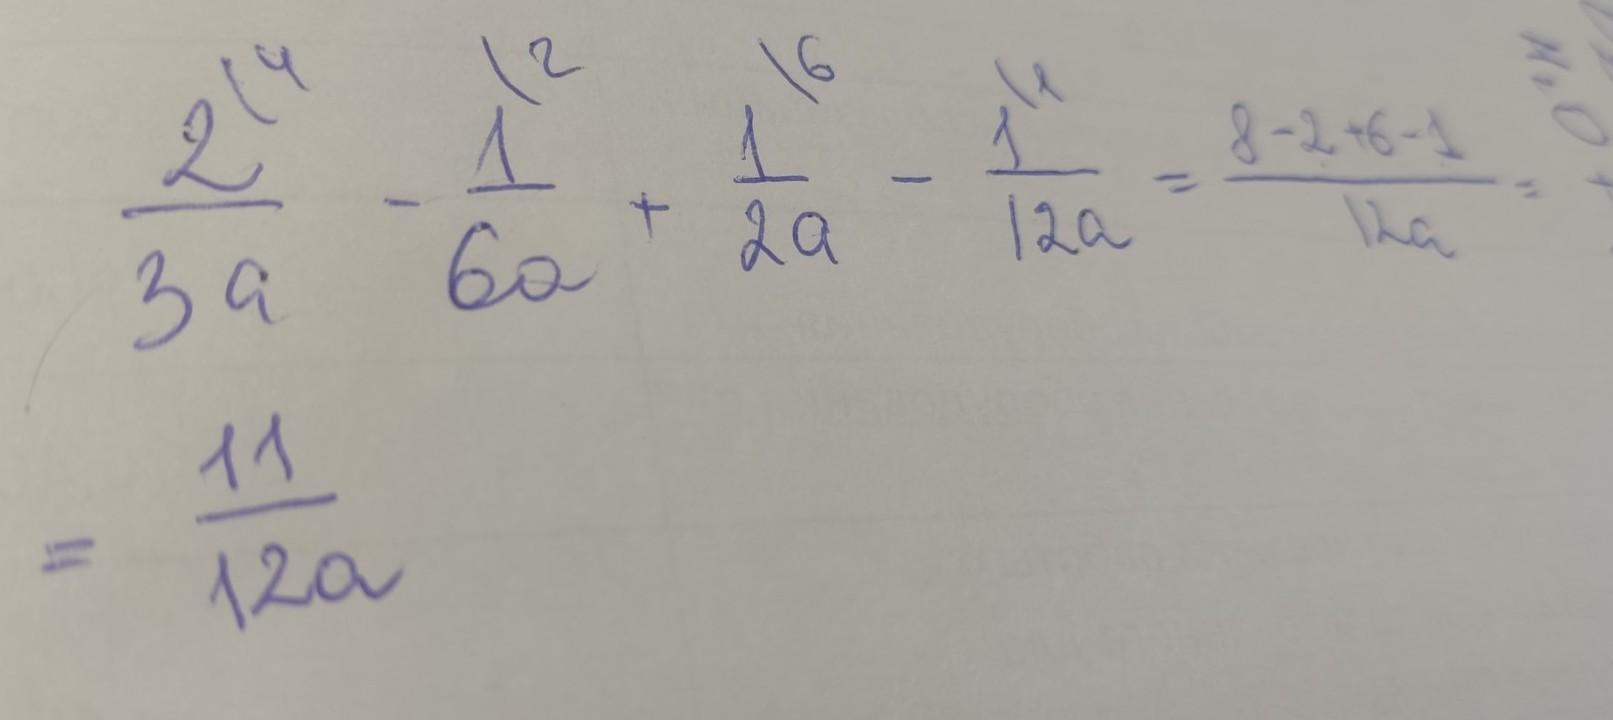 2\4/3a - 1\2/6a + 1\6/2a - 1\1/12a = 8-2+6-1/12a =
= 11/12a